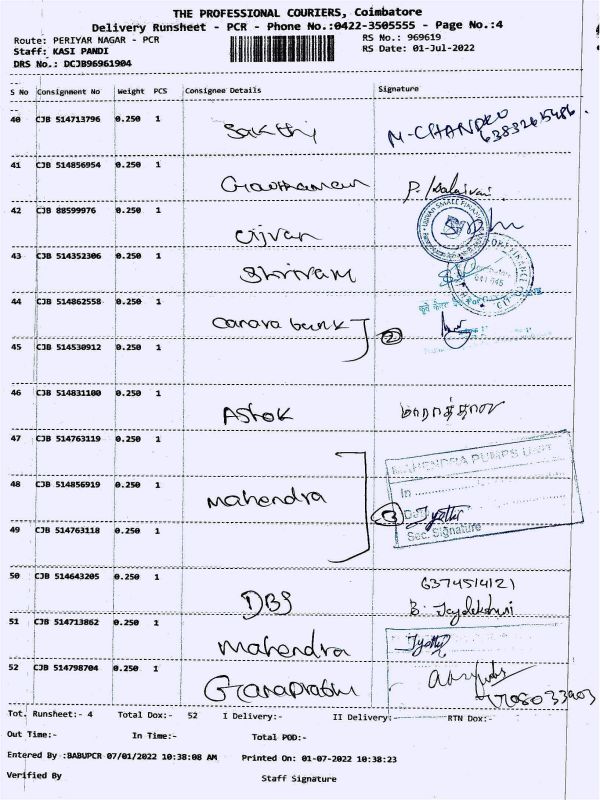 THE PROFESSIONAL COURIERS, Coimbatore
Delivery Runsheet - PCR - Phone No.:0422-3505555 - Page No.:4
Route: PERIYAR NAGAR - PCR
RS No.: 969619
Staff: KASI PANDI
RS Date: 01-Jul-2022
DRS No.: DCJB96961904
S No Consignment No Weight PCS Consignee Details Signature
40 CJB 514713796 0.250 1 Sakthi M-CHANDRU
6383265486
41 CJB 514856954 0.250 1 Gowthaman P. Kalaivani
42 CJB 88599976 0.250 1 Ujjivan
43 CJB 514352306 0.250 1 Shriram
44 CJB 514862558 0.250 1 Canara bank 2
45 CJB 514530912 0.250 1
46 CJB 514831100 0.250 1 Ashok
47 CJB 514763119 0.250 1
MAHENDRA PUMPS UNIT
48 CJB 514856919 0.250 1 Mahendra 3
In
Jyothi
Sec. Signature
49 CJB 514763118 0.250 1
50 CJB 514643205 0.250 1 DBS 6374514121
51 CJB 514713862 0.250 1 Mahendra Jyothi
52 CJB 514798704 0.250 1 Ganaprabhu
Tot. Runsheet:- 4 Total Dox:- 52 I Delivery:- II Delivery:- RTN Dox:-
Out Time:- In Time:- Total POD:-
Entered By :BABUPCR 07/01/2022 10:38:08 AM Printed On: 01-07-2022 10:38:23
Verified By Staff Signature